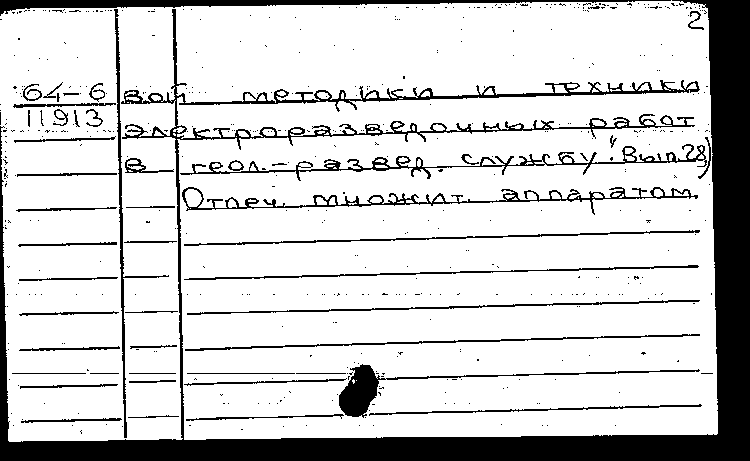 2
64-6 вой методики и техники
11913 электроразведочных работ
в геол.-развед. службу". Вып. 28)
Отпеч. множит. аппаратом.